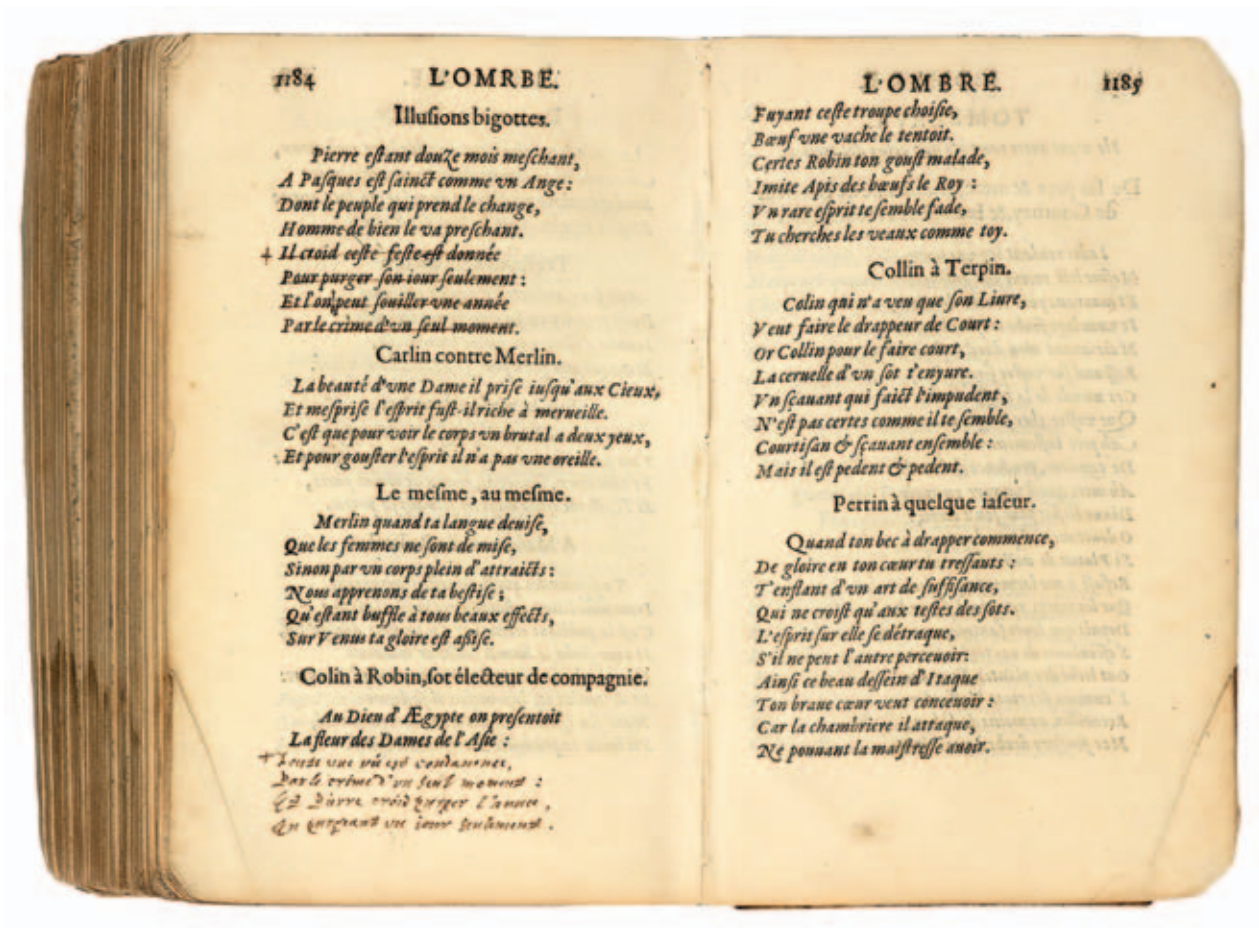 1184 L'OMRBE.
Illuſions bigottes.
Pierre eſtant douze mois meſchant,
A Paſques eſt ſainct comme vn Ange:
Dont le peuple qui prend le change,
Homme de bien le va preſchant.
+ Il croid ceſte feſte eſt donnée
Pour purger ſon iour ſeulement:
Et l'on peut ſouiller vne année
Par le crime d'vn ſeul moment.
Carlin contre Merlin.
La beauté d'vne Dame il priſe iuſqu'aux Cieux,
Et meſpriſe l'eſprit fuſt-il riche à merueille.
C'eſt que pour voir le corps vn brutal a deux yeux,
Et pour gouſter l'eſprit il n'a pas vne oreille.
Le meſme, au meſme.
Merlin quand ta langue deuiſe,
Que les femmes ne ſont de miſe,
Sinon par vn corps plein d'attraicts:
Nous apprenons de ta beſtiſe;
Qu'eſtant buffle à tous beaux effects,
Sur Venus ta gloire eſt aſsiſe.
Colin à Robin, ſot électeur de compagnie.
Au Dieu d'Ægypte on preſentoit
La fleur des Dames de l'Aſie:
+ vne vie est condamnee,
Par le crime d'vn ſeul moment:
Et Pierre croid purger l'annee,
En purgeant vn iour ſeulement.
L'OMBRE. 1185
Fuyant ceſte troupe choiſie,
Bœuf vne vache le tentoit.
Certes Robin ton gouſt malade,
Imite Apis des bœufs le Roy:
Vn rare eſprit te ſemble fade,
Tu cherches les veaux comme toy.
Collin à Terpin.
Colin qui n'a veu que ſon Liure,
Veut faire le drappeur de Court:
Or Collin pour le faire court,
La ceruelle d'vn ſot t'enyure.
Vn ſçauant qui faict l'impudent,
N'eſt pas certes comme il te ſemble,
Courtiſan & ſçauant enſemble:
Mais il eſt pedent & pedent.
Perrin à quelque iaſeur.
Quand ton bec à drapper commence,
De gloire en ton cœur tu treſſauts:
T'enflant d'vn art de ſuffiſance,
Qui ne croiſt qu'aux teſtes des ſots.
L'eſprit ſur elle ſe détraque,
S'il ne peut l'autre perceuoir:
Ainſi ce beau deſſein d'Itaque
Ton braue cœur veut conceuoir:
Car la chambriere il attaque,
Ne pouuant la maiſtreſſe auoir.